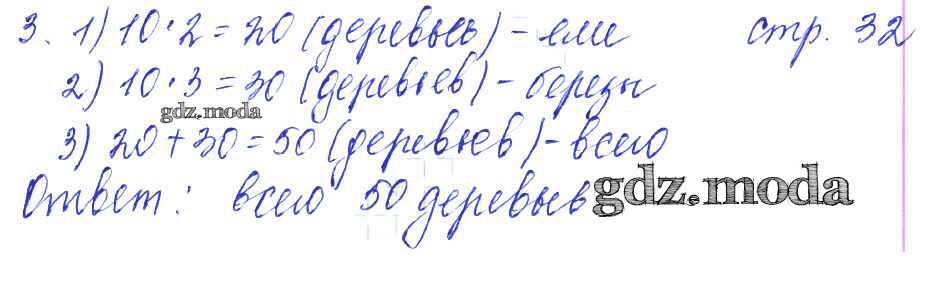 3. 1) 10·2=20 (деревьев) – ели стр. 32
2) 10·3=30 (деревьев) – березы
gdz.moda
3) 20+30=50 (деревьев) – всего
Ответ: всего 50 деревьев
gdz.moda